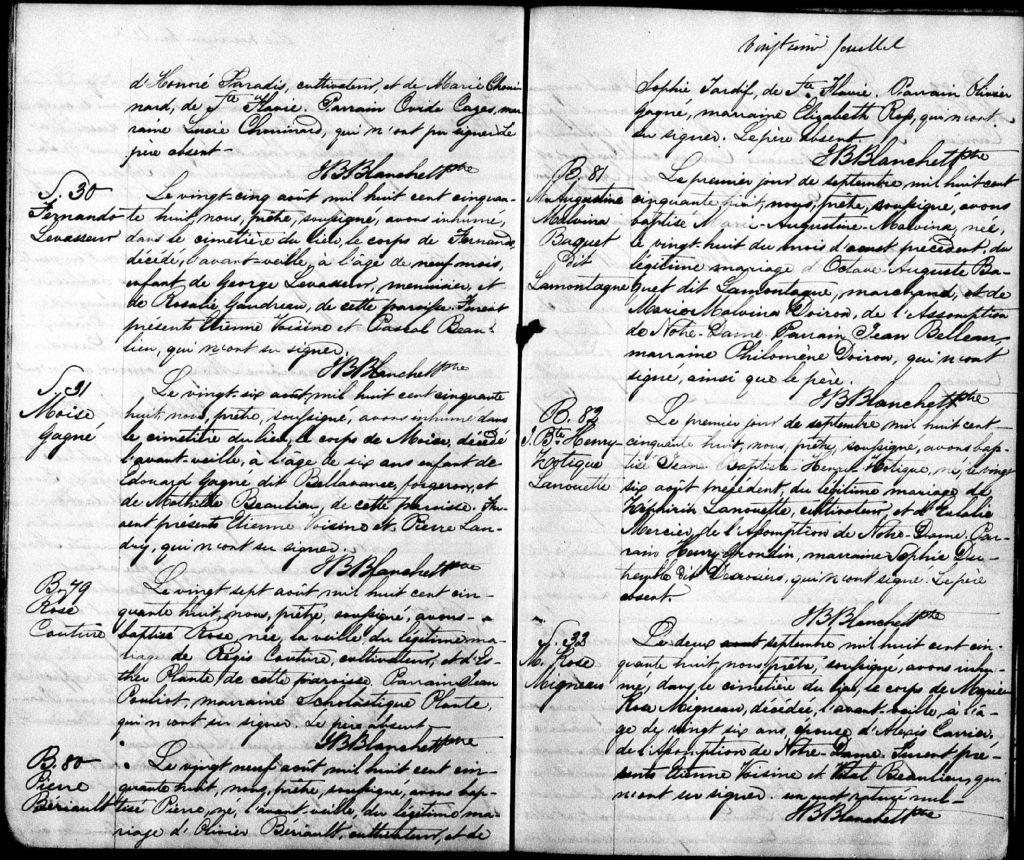 d'Honoré Paradis, cultivateur, et de Marie Choui-
nard, de Ste Flavie. Parrain Ovide Cazes, mar-
raine Lucie Chouinard, qui n'ont pu signer. Le
père absent-
JBBlanchet ptre
S. 30
Fernando
Levasseur
Le vingt-cinq août, mil huit cent cinquan-
te huit, nous, prêtre, soussigné, avons inhumé,
dans le cimetière du lieu, le corps de Fernando,
décédé, l'avant-veille, à l'âge de neuf mois,
enfant de George Levasseur, menuisier, et
de Rosalie Gaudreau, de cette paroisse. Furent
présents Etienne Voisine et Pascal Beau-
lieu, qui n'ont su signer.
JBBlanchet ptre
S. 31
Moïse
Gagné
Le vingt-six août, mil huit cent cinquante
huit, nous, prêtre, soussigné, avons inhumé dans
le cimetière du lieu, le corps de Moïse, décédé
l'avant-veille, à l'âge de six ans enfant de
Edouard Gagné dit Bellavance, forgeron, et
de Mathilde Beaulieu, de cette paroisse. Fu-
rent présents Etienne Voisine et Pierre Lan-
dry, qui n'ont su signer.
JBBlanchet ptre
B. 79
Rose
Couture
Le vingt sept août, mil huit cent cin-
quante huit, nous, prêtre, soussigné, avons
baptisé Rose, née, la veille, du légitime ma-
riage de Régis Couture, cultivateur, et d'Es-
ther Plante de cette paroisse. Parrain Jean
Pouliot, marraine Scholastique Plante,
qui n'ont su signer. Le père absent-
JBBlanchet ptre
B. 80
Pierre
Bériault
Le vingt neuf août mil huit cent cin-
quante huit, nous, prêtre, soussigné, avons bap-
tisé Pierre, né, l'avant-veille, du légitime ma-
riage d'Olivier Bériault, cultivateur, et de
vingt
Sophie Tardif, de Ste Flavie. Parrain Olivier
Gagné, marraine Elizabeth Ross, qui n'ont
su signer. Le père absent
JBBlanchet ptre
B. 81
M. Augustine
Malvina
Baquet
dit
Lamontagne
Le premier jour de septembre mil huit cent
cinquante huit, nous, prêtre, soussigné, avons
baptisé Marie-Augustine-Malvina, née,
le vingt huit du mois d'aoust précédent, du
légitime mariage d'Octave-Auguste Ba-
quet dit Lamontagne, marchand, et de
Marie Malvina Doiron, de l'Assomption
de Notre-Dame. Parrain, Jean Belleau,
marraine Philomène Doiron, qui n'ont
signé, ainsi que le père.
JBBlanchet ptre
B. 82
J. Bte Henry-
Zotique
Lanouette
Le premier jour de septembre, mil huit cent-
cinquante huit, nous, prêtre, soussigné, avons bap-
tisé Jean-Baptiste-Henri-Zotique, né, le vingt
six août précédent, du légitime mariage de
Zéphirin Lanouette, cultivateur, et d'Eulalie
Mercier, de l'Assomption de Notre-Dame. Par-
rain Henry Grondin, marraine Sophie Du-
tremble dit Desrosiers, qui n'ont signé. Le père
absent.
JBBlanchet ptre
S. 32
M. Rose
Migneau
Le deux aout septembre mil huit cent cin-
quante huit, nous prêtre, soussigné, avons inhu-
mé, dans le cimetière du lieu, le corps de Marie
Rose Migneau, décédée, l'avant-veille, à l'â-
ge de vingt six ans, épouse d'Alexis Carrier,
de l'Assomption de Notre-Dame. Furent pré-
sents Etienne Voisine et Vital Beaulieu, qui
n'ont su signer. un mot raturé nul-
JBBlanchet ptre